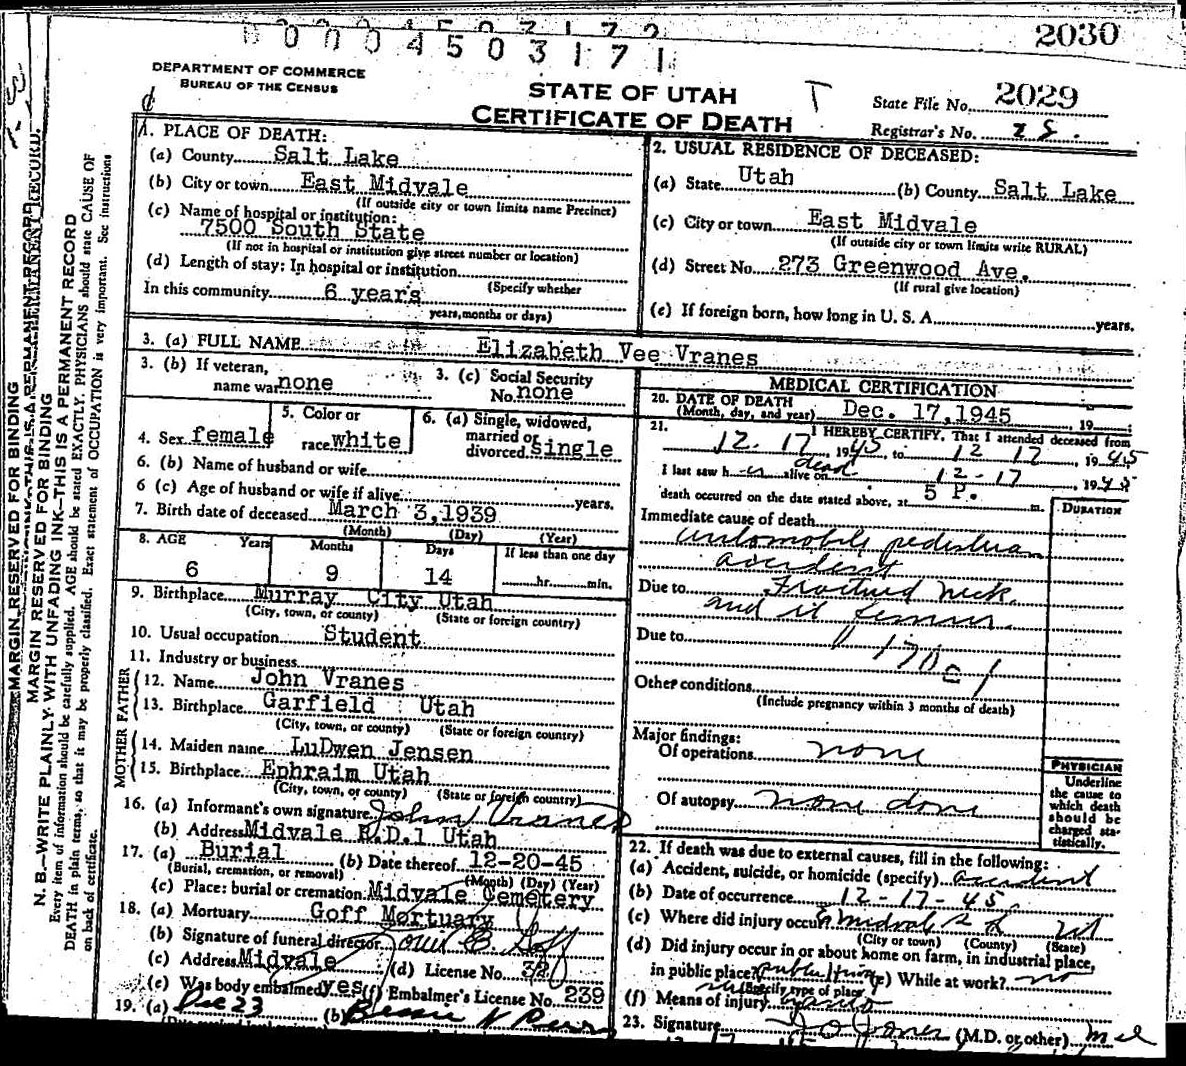 2030
00004503171
DEPARTMENT OF COMMERCE
BUREAU OF THE CENSUS
STATE OF UTAH
CERTIFICATE OF DEATH
T
State File No. 2029
Registrar's No.
1. PLACE OF DEATH:
(a) County Salt Lake
(b) City or town East Midvale
(If outside city or town limits name Precinct)
(c) Name of hospital or institution:
7500 South State
(If not in hospital or institution give street number or location)
(d) Length of stay: In hospital or institution
(Specify whether
In this community 6 years
years, months or days)
2. USUAL RESIDENCE OF DECEASED:
(a) State Utah (b) County Salt Lake
(c) City or town East Midvale
(If outside city or town limits write RURAL)
(d) Street No. 273 Greenwood Ave.
(If rural give location)
(e) If foreign born, how long in U. S. A. years.
3. (a) FULL NAME Elizabeth Vee Vranes
3. (b) If veteran,
name war none
3. (c) Social Security
No. none
4. Sex female
5. Color or
race white
6. (a) Single, widowed,
married or
divorced Single
6. (b) Name of husband or wife
6 (c) Age of husband or wife if alive years.
7. Birth date of deceased March 3, 1939
(Month) (Day) (Year)
8. AGE Years Months Days If less than one day
6 9 14 hr. min.
9. Birthplace Murray City Utah
(City, town, or county) (State or foreign country)
10. Usual occupation Student
11. Industry or business
FATHER
12. Name John Vranes
13. Birthplace Garfield Utah
(City, town, or county) (State or foreign country)
MOTHER
14. Maiden name LuDwen Jensen
15. Birthplace Ephraim Utah
(City, town, or county) (State or foreign country)
16. (a) Informant's own signature John Vranes
(b) Address Midvale R.D.1 Utah
17. (a) Burial (b) Date thereof 12-20-45
(Burial, cremation, or removal) (Month) (Day) (Year)
(c) Place: burial or cremation Midvale Cemetery
18. (a) Mortuary Goff Mortuary
(b) Signature of funeral director Goff
(c) Address Midvale (d) License No.
(e) Was body embalmed yes (f) Embalmer's License No. 239
19. (a) Dec 23 (b) Bessie N
MEDICAL CERTIFICATION
20. DATE OF DEATH
(Month, day, and year) Dec. 17, 1945, 19
21. I HEREBY CERTIFY, That I attended deceased from
12-17, 1945, to 12 17, 1945
I last saw her dead alive on 12-17, 1945
death occurred on the date stated above, at 5 P. m.
DURATION
Immediate cause of death
automobile pedestrian
accident
Due to Fractured neck
and femur.
Due to
170c1
Other conditions
(Include pregnancy within 3 months of death)
Major findings:
Of operations none
Of autopsy none done
PHYSICIAN
Underline
the cause to
which death
should be
charged sta-
tistically.
22. If death was due to external causes, fill in the following:
(a) Accident, suicide, or homicide (specify) accident
(b) Date of occurrence 12-17-45
(c) Where did injury occur E Midvale S L Ut
(City or town) (County) (State)
(d) Did injury occur in or about home on farm, in industrial place,
in public place? (e) While at work? no
(Specify type of place)
(f) Means of injury
23. Signature Jones (M.D. or other) M d
MARGIN RESERVED FOR BINDING
N. B.—WRITE PLAINLY, WITH UNFADING INK—THIS IS A PERMANENT RECORD
Every item of information should be carefully supplied. AGE should be stated EXACTLY. PHYSICIANS should state CAUSE OF
DEATH in plain terms, so that it may be properly classified. Exact statement of OCCUPATION is very important. See instructions
on back of certificate.